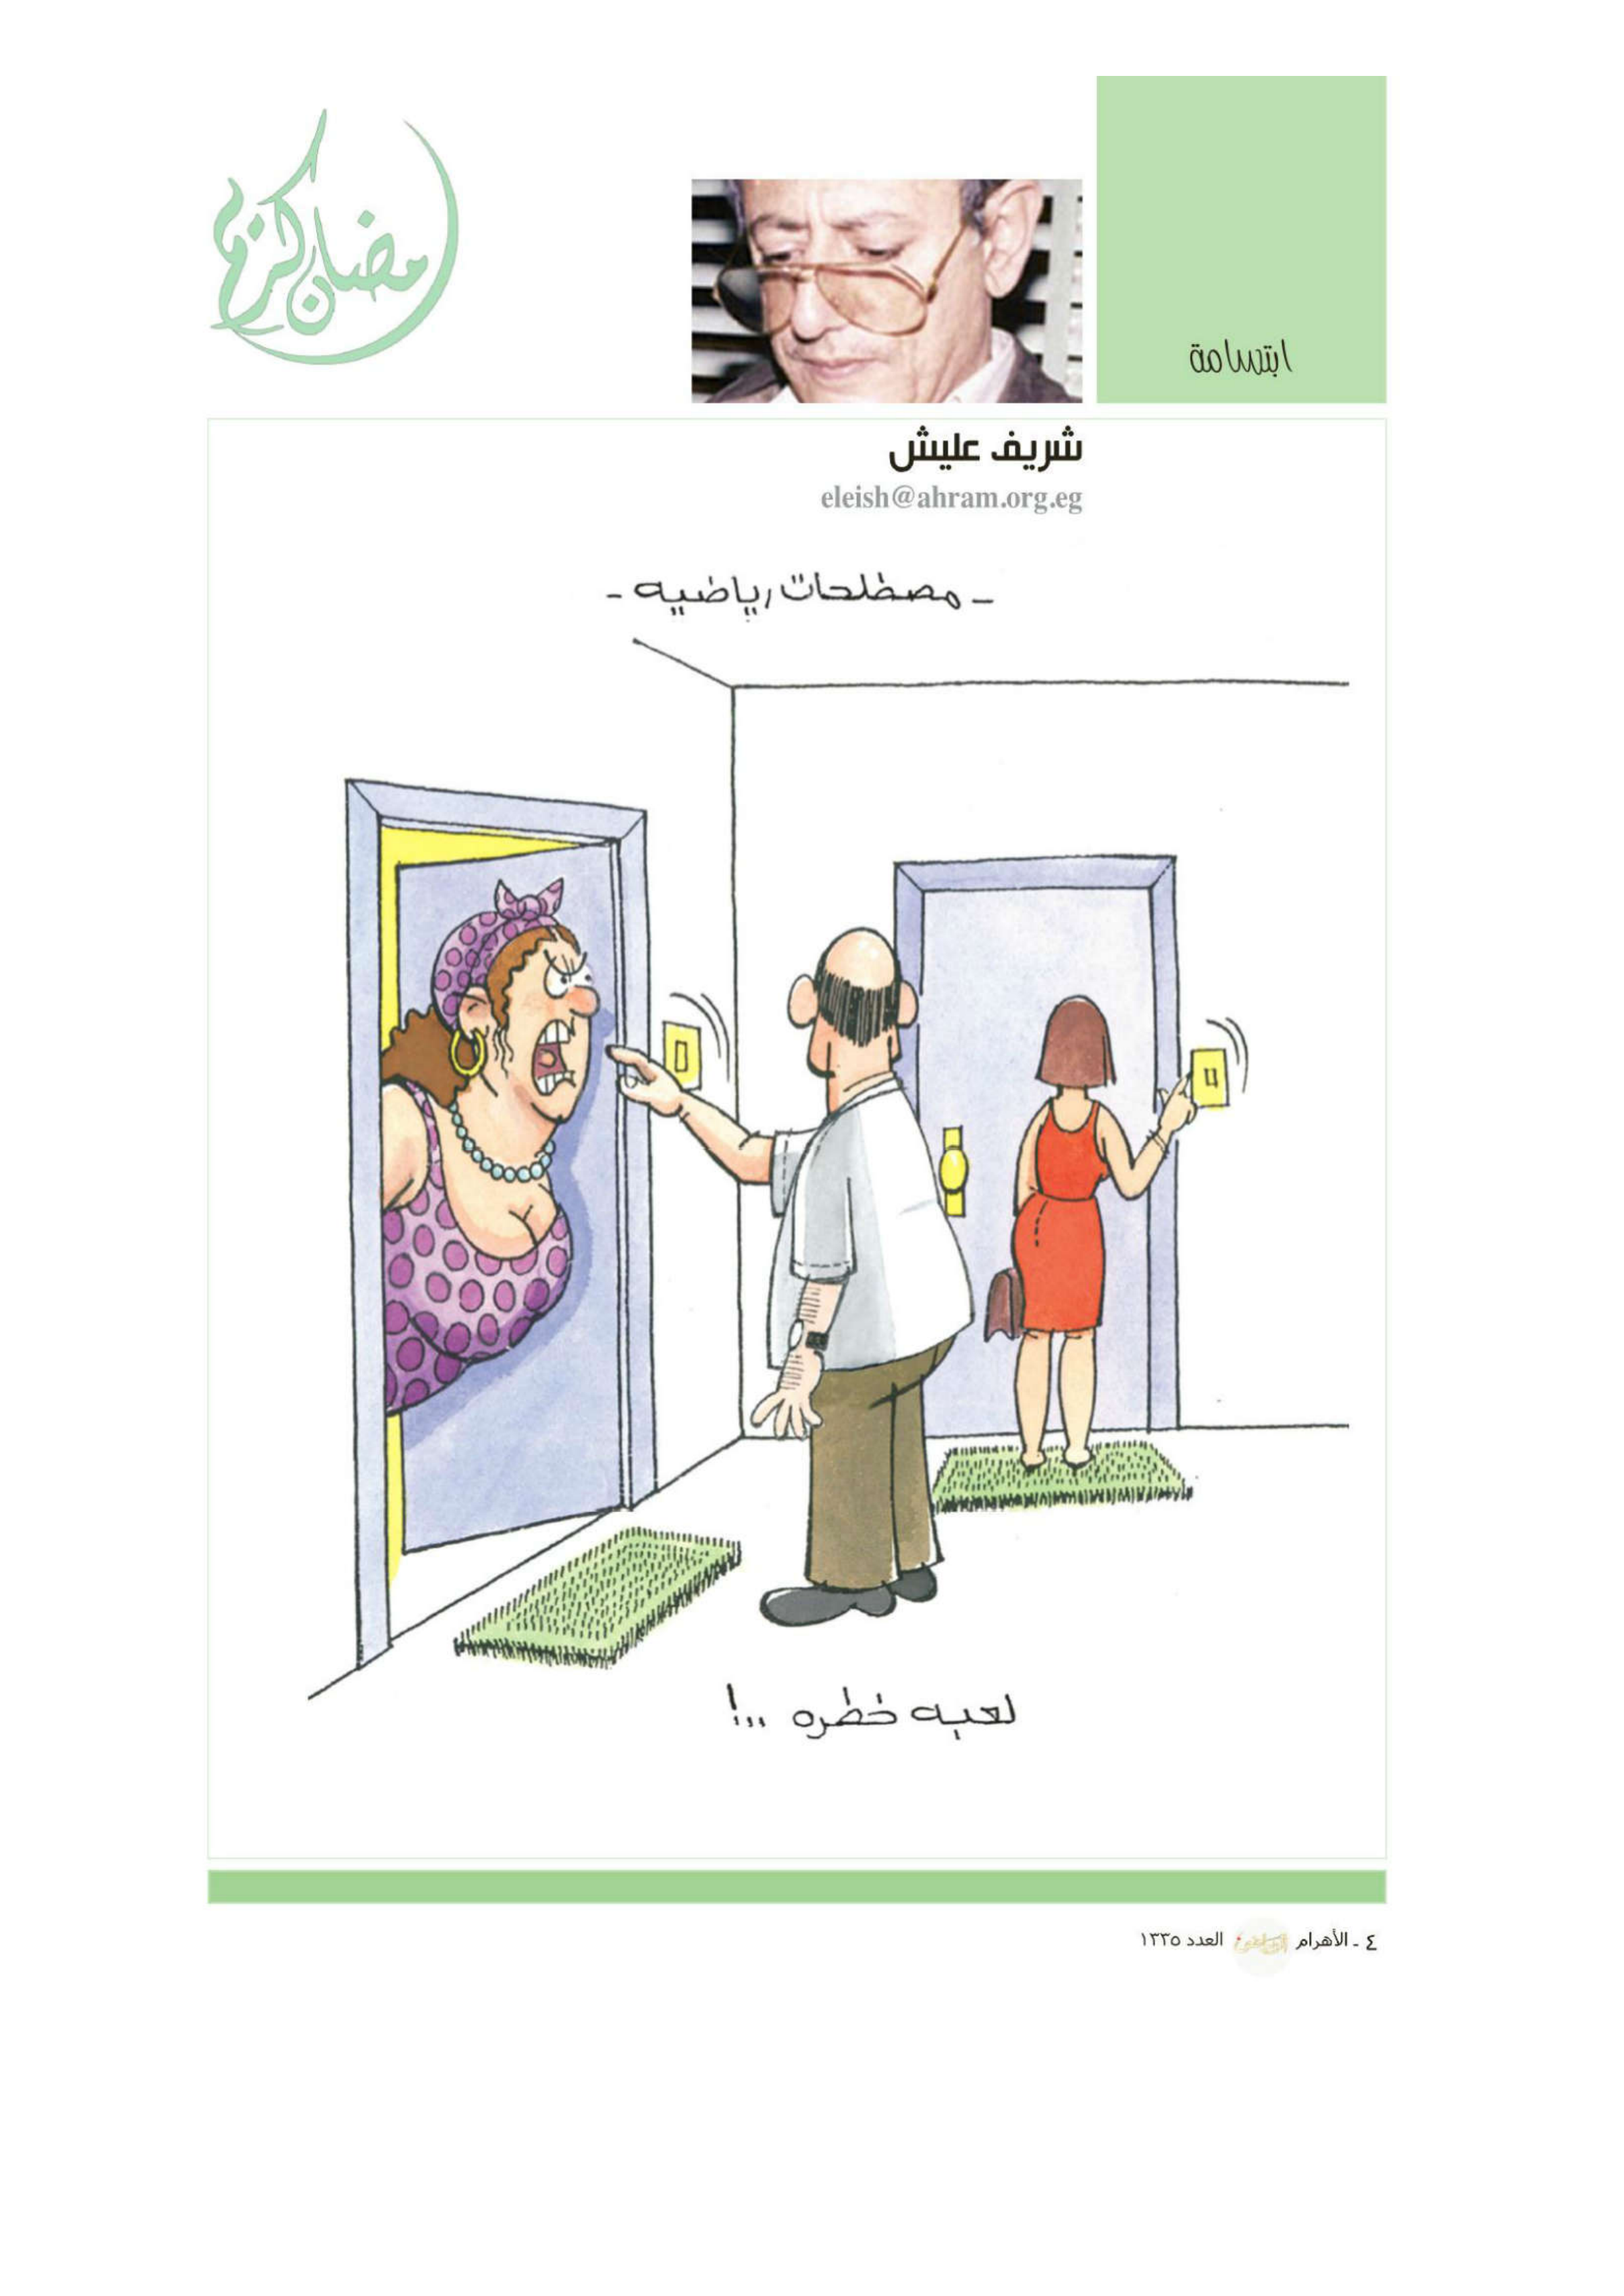 رمضان كريم
ابتسامة
شريف عليش
eleish@ahram.org.eg
- مصطلحات رياضيه -
لعبه خطره ..!
٤ - الأهرام الرياضي العدد ١٣٣٥